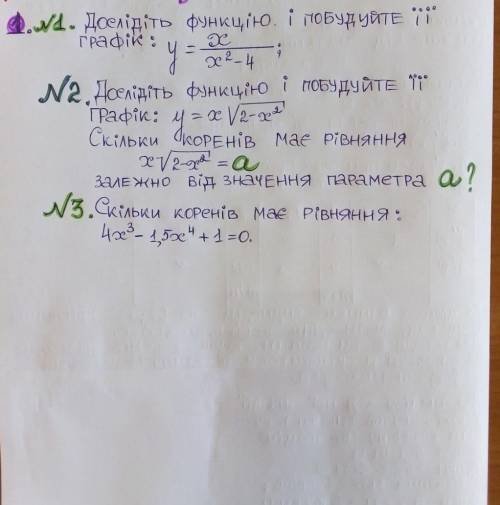 1. №1. Дослідіть функцію. і побудуйте її
графік: y = x / (x² - 4);
№2. Дослідіть функцію і побудуйте її
графік: y = x√(2-x²)
Скільки коренів має рівняння
x√(2-x²) = a
залежно від значення параметра a?
№3. Скільки коренів має рівняння:
4x³ - 1,5x⁴ + 1 = 0.